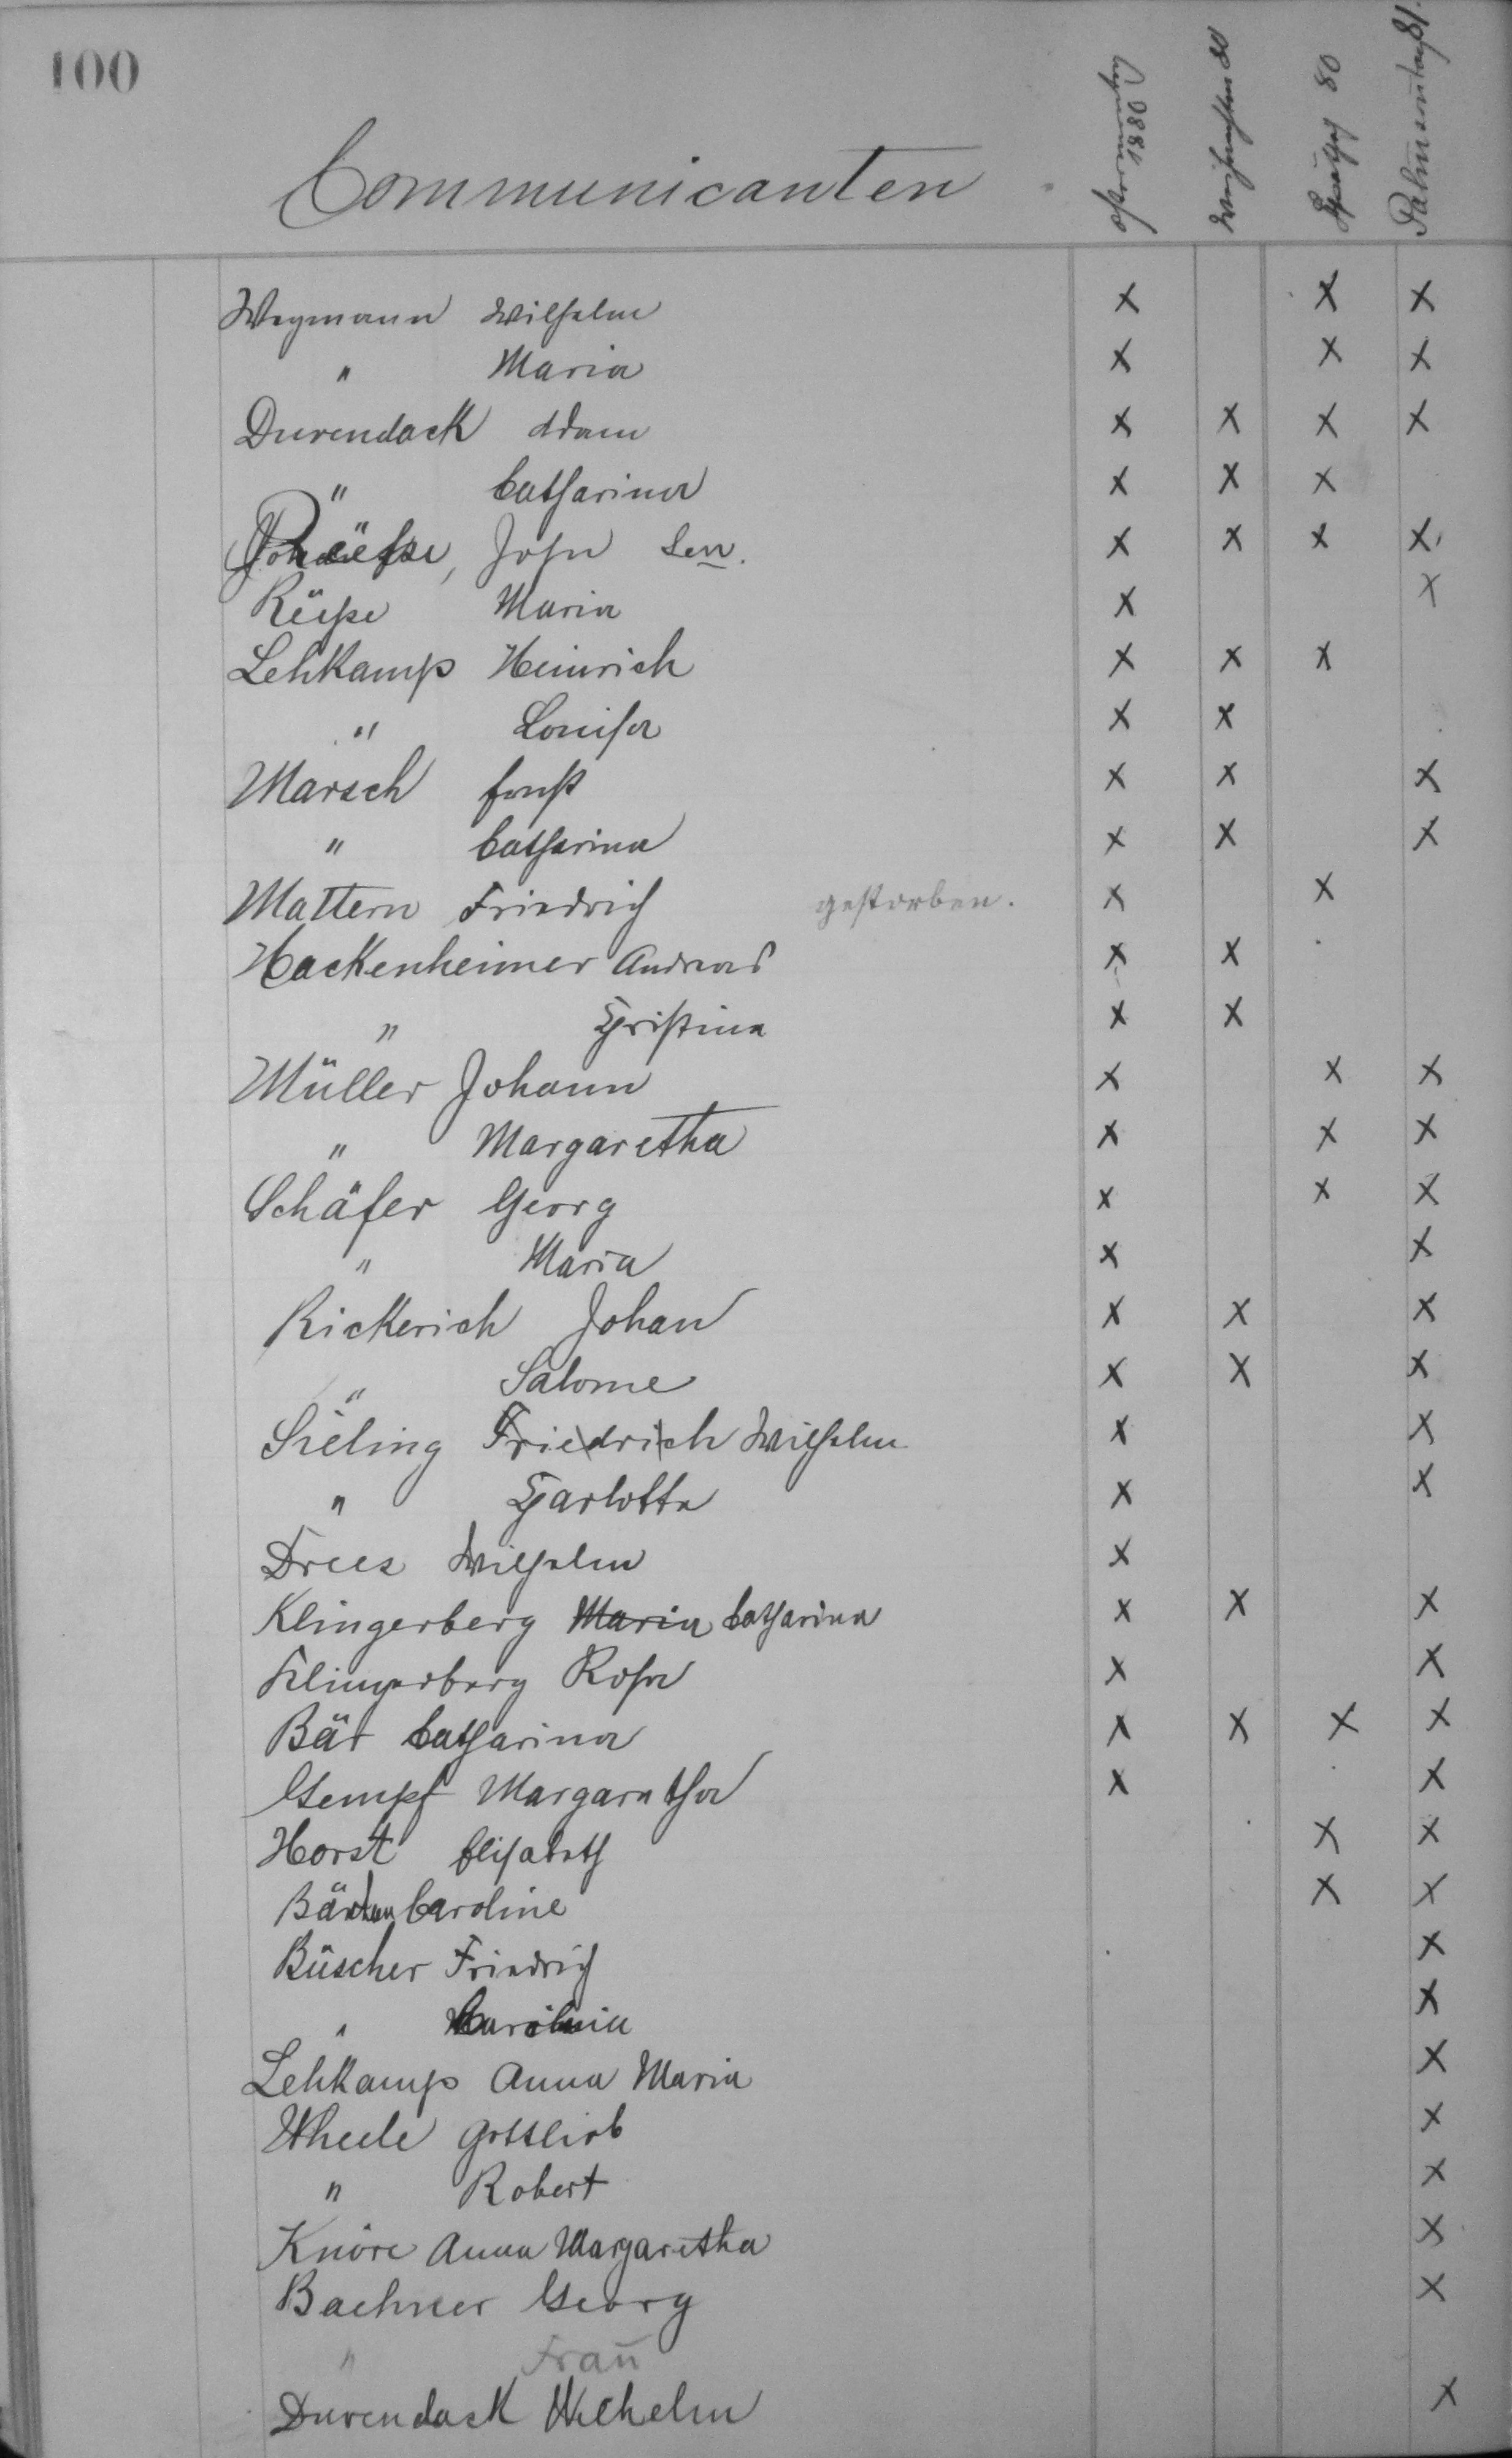 100
Communicanten
Ostermontag 1880
Weihnachten 80
80
Palmsontag 81.
Wegmann Wilhelm X X X
" Maria X X X
Durendack Adam X X X X
" Catharina X X X
John Sen. X X X X
Rüpe Maria X X
Lehkamp Heinrich X X X
" Louisa X X
Marsch Ernst X X X
" Catharina X X X
Mattern Friedrich gestorben. X X
Hackenheimer Andreas X X
" Christina X X
Müller Johann X X X
" Margaretha X X X
Schäfer Georg X X X
" Maria X X
Rickerich Johan X X X
" Salome X X X
Sieling Friedrich Wilhelm X X
" Charlotta X X
Drees Wilhelm X
Klingerberg Maria Catharina X X X
Klingerberg Rosa X X
Bär Catharina X X X X
Gempf Margaretha X X
Horst Elisabeth X X
Caroline X X
Büscher Friedrich X
" X
Lehkamp Anna Maria X
Theele Gottlieb X
" Robert X
Knöre Anna Margaretha X
Bachner Georg X
" Frau
Durendack Wilhelm X